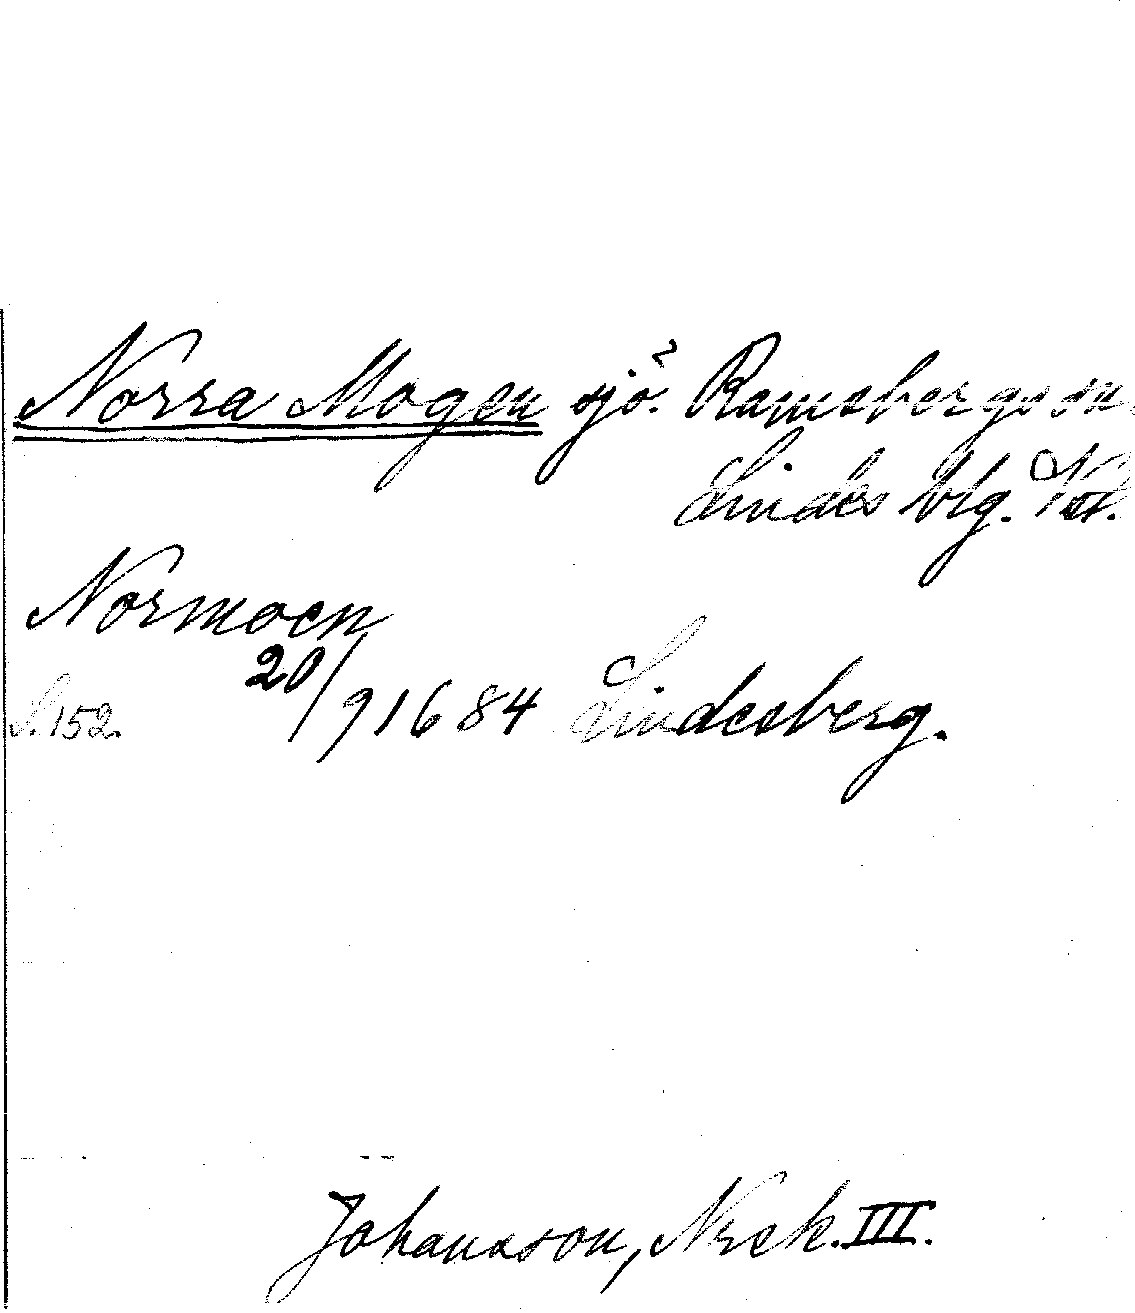 Norra Mogen sjö. Ramsbergs sn.
Lindes blg. Vstl.
Normoen
S. 152. 20/9 1684 Lindesberg.
Johansson, Nrck. III.